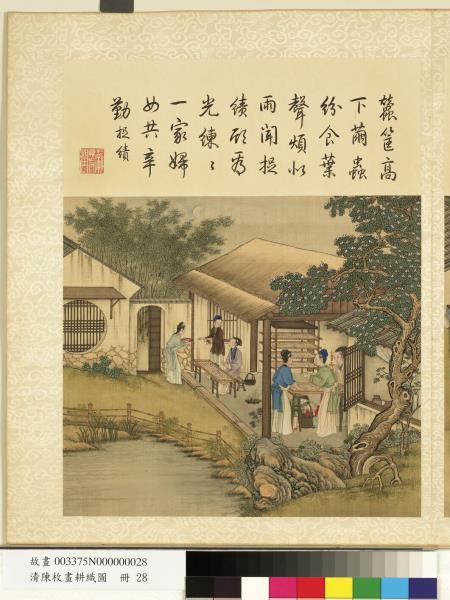 筐高
下繭蟲
紛食葉
聲頻似
雨聞捉
績
光練〻
一家婦
女共辛
勤 捉績
故畫 003375N000000028
清陳枚畫耕織圖 冊 28